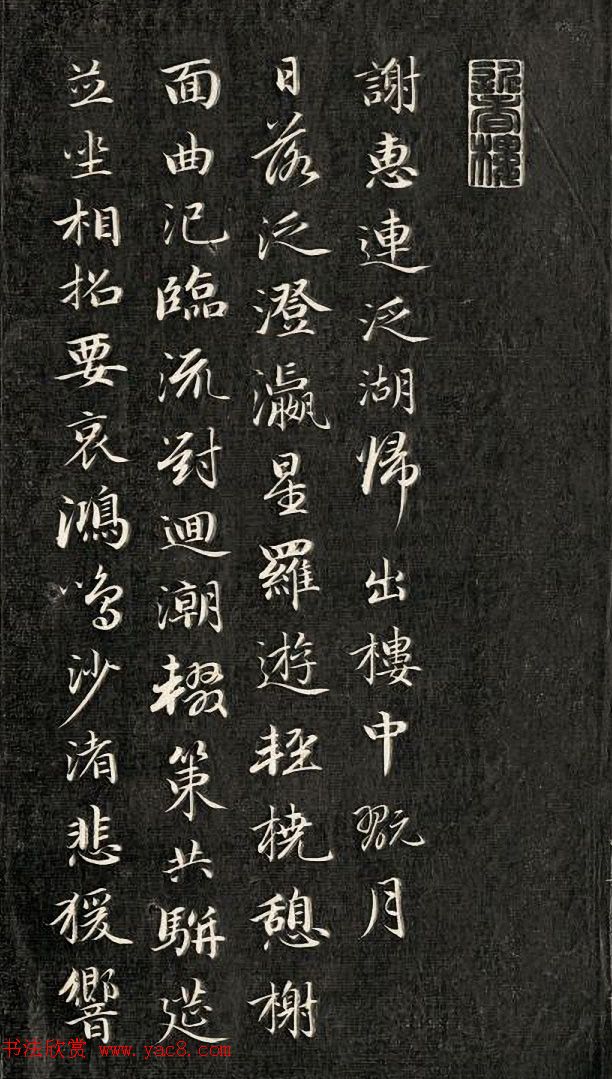 謝惠連泛湖帰出樓中翫月
日落泛澄瀛星羅遊輕橈憩榭
面曲汜臨流對迴潮輟策共駢筵
並坐相招要哀鴻鳴沙渚悲猨響
书法欣赏 www.yac8.com